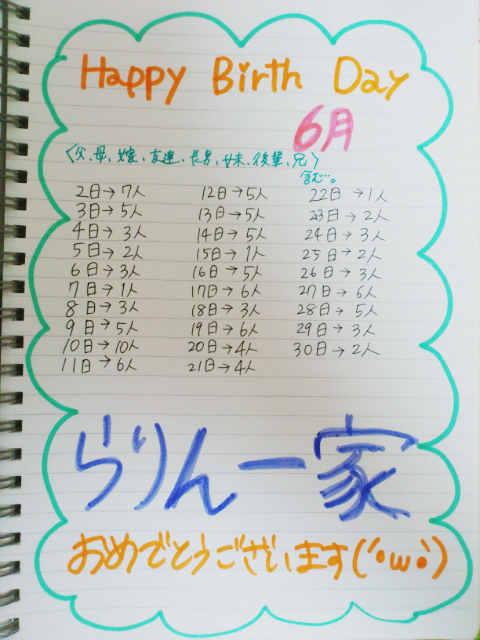 Happy Birth Day
6月
〈父、母、嫁、友達、長男、妹、後輩、兄〉
含む…。
2日→7人
3日→5人
4日→3人
5日→2人
6日→3人
7日→1人
8日→3人
9日→5人
10日→10人
11日→6人
12日→5人
13日→5人
14日→5人
15日→1人
16日→5人
17日→6人
18日→3人
19日→6人
20日→4人
21日→4人
22日→1人
23日→2人
24日→3人
25日→2人
26日→3人
27日→6人
28日→5人
29日→3人
30日→2人
らりん一家
おめでとうございます(′•ω•`)